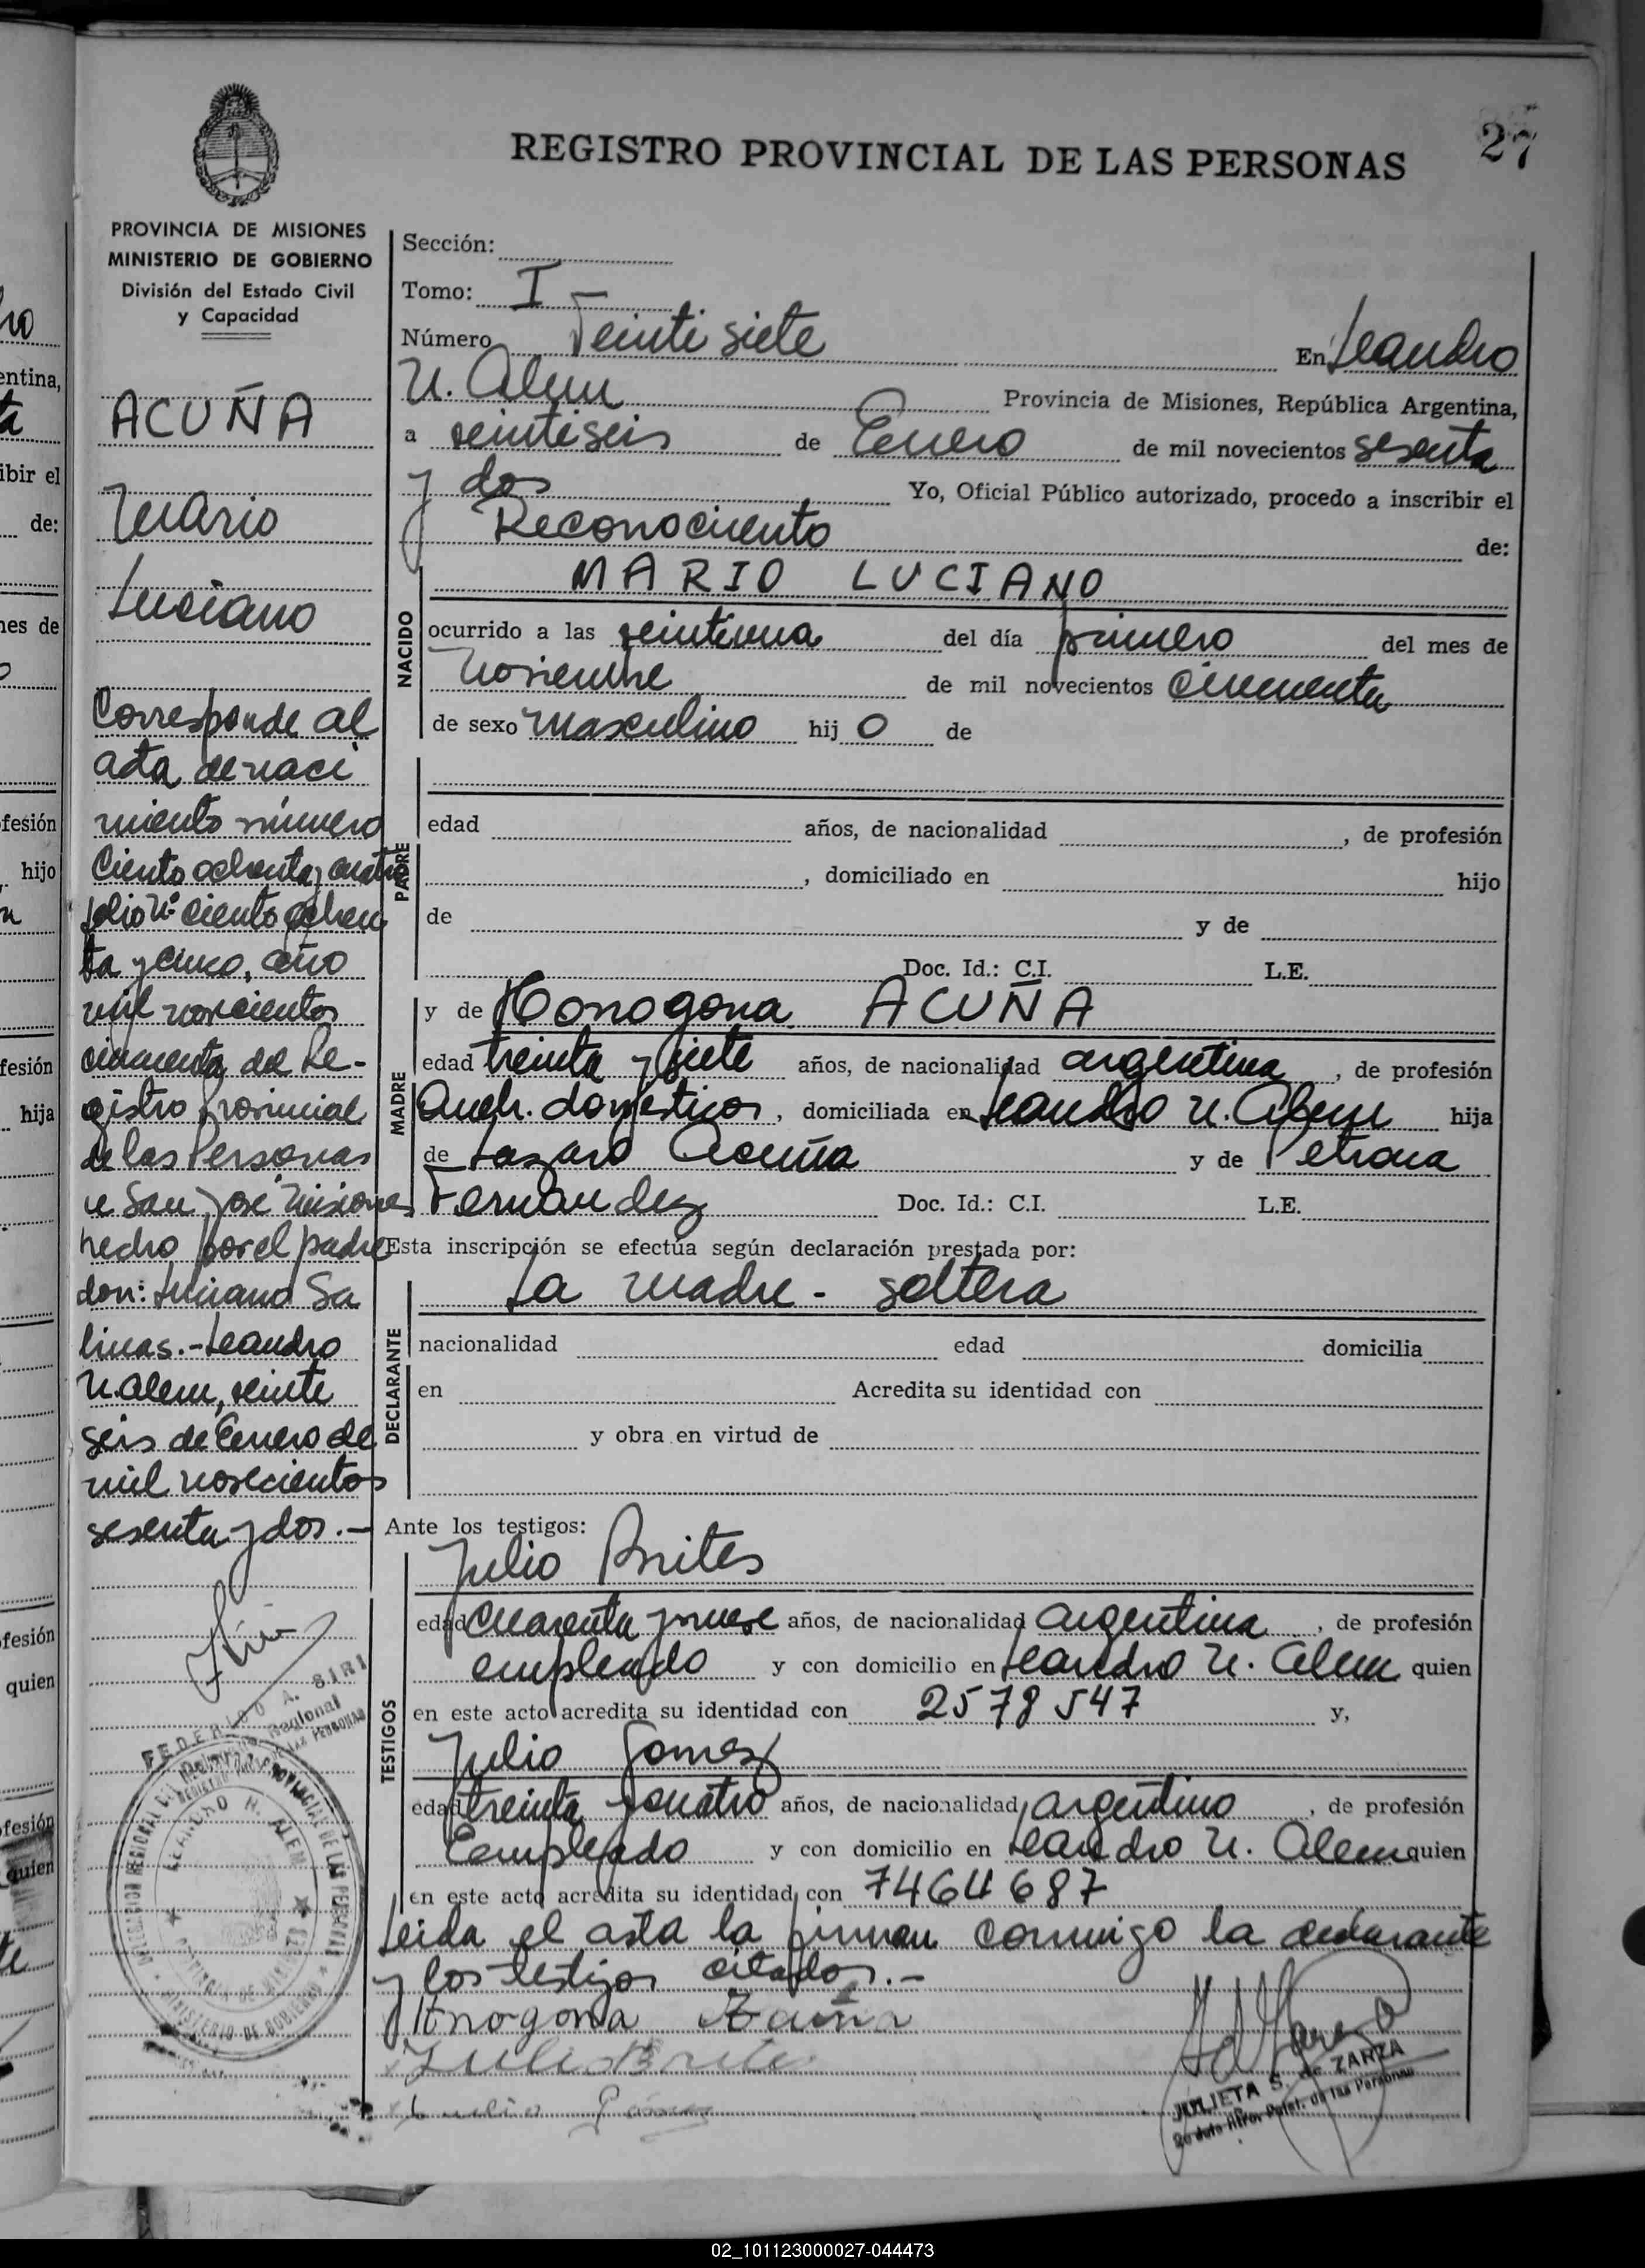 27
REGISTRO PROVINCIAL DE LAS PERSONAS
PROVINCIA DE MISIONES
MINISTERIO DE GOBIERNO
División del Estado Civil
y Capacidad
ACUÑA
Mario
Luciano
Corresponde al
acta de naci
miento número
ciento ochenta y cuatro
folio Nº ciento ochen
ta y cinco, año
mil novecientos
cincuenta del Re-
gistro Provincial
de las Personas
de San José Misiones
hecho por el padre
don: Luciano Sa
linas.- Leandro
N. Alem, veinte
seis de Enero de
mil novecientos
sesenta y dos.-
FEDERICO A. SIRI
Sección:
Tomo: I -
Número Veintisiete En Leandro
N. Alem Provincia de Misiones, República Argentina,
a veintiseis de Enero de mil novecientos sesenta
y dos Yo, Oficial Público autorizado, procedo a inscribir el
Reconocimento de:
MARIO LUCIANO
NACIDO
ocurrido a las veintiuna del día primero del mes de
Noviembre de mil novecientos cincuenta
de sexo masculino hijo de
PADRE
edad años, de nacionalidad , de profesión
, domiciliado en hijo
de y de
Doc. Id.: C.I. L.E.
MADRE
y de Honogona ACUÑA
edad treinta y siete años, de nacionalidad argentina , de profesión
Queh. domésticos, domiciliada en Leandro N. Alem hija
de Lazaro Acuña y de Petrona
Fernandez Doc. Id.: C.I. L.E.
Esta inscripción se efectúa según declaración prestada por:
DECLARANTE
La madre - soltera
nacionalidad edad domicilia
en Acredita su identidad con
y obra en virtud de
Ante los testigos:
TESTIGOS
Julio Brites
edad cuarenta y nueve años, de nacionalidad argentina , de profesión
empleado y con domicilio en Leandro N. Alem quien
en este acto acredita su identidad con 2578547 y,
Julio Gomez
edad treinta y cuatro años, de nacionalidad argentino , de profesión
Empleado y con domicilio en Leandro N. Alem quien
en este acto acredita su identidad con 7464687
Leida el acta la firman conmigo la declarante
y los testigos citados.-
Julio Brites
Julio Gómez
JULIETA S. de ZARZA
02_101123000027-044473